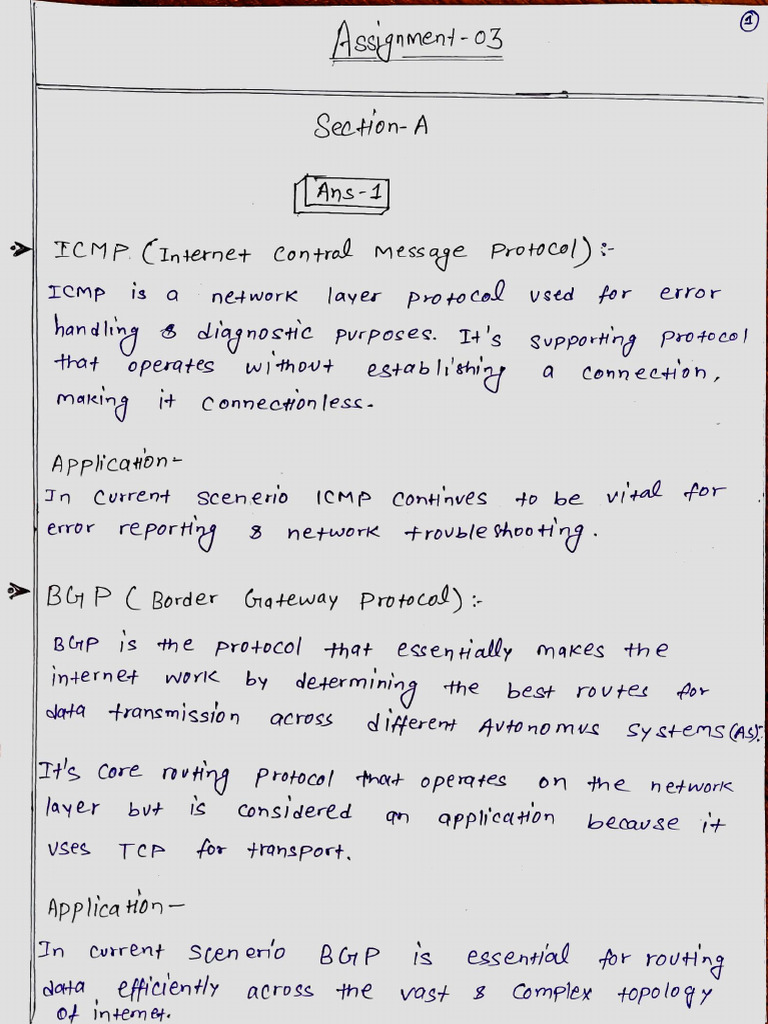 1
Assignment-03
Section-A
Ans-1
ICMP (Internet Control Message Protocol):-
ICMP is a network layer protocol used for error
handling & diagnostic purposes. It's supporting protocol
that operates without establishing a connection,
making it connectionless.
Application-
In current scenerio ICMP continues to be vital for
error reporting & network troubleshooting.
BGP (Border Gateway Protocol):-
BGP is the protocol that essentially makes the
internet work by determining the best routes for
data transmission across different Autonomus Systems(AS).
It's core routing protocol that operates on the network
layer but is considered an application because it
uses TCP for transport.
Application-
In current scenerio BGP is essential for routing
data efficiently across the vast & complex topology
of internet.